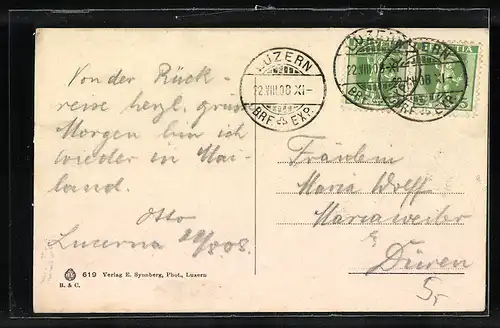 Von der Rück-
reise herzl. grüss
Morgen bin ich
wieder in Mai-
land.
Otto
Lucerna 22/8 08.
LUZERN
22.VIII.08 XI-
BRF. EXP.
LUZERN
22.VIII.08 XI-
BRF. EXP.
Fräulein
Maria Wolff
Mariaweiler
Düren
619 Verlag E. Synnberg, Phot., Luzern
B. & C.